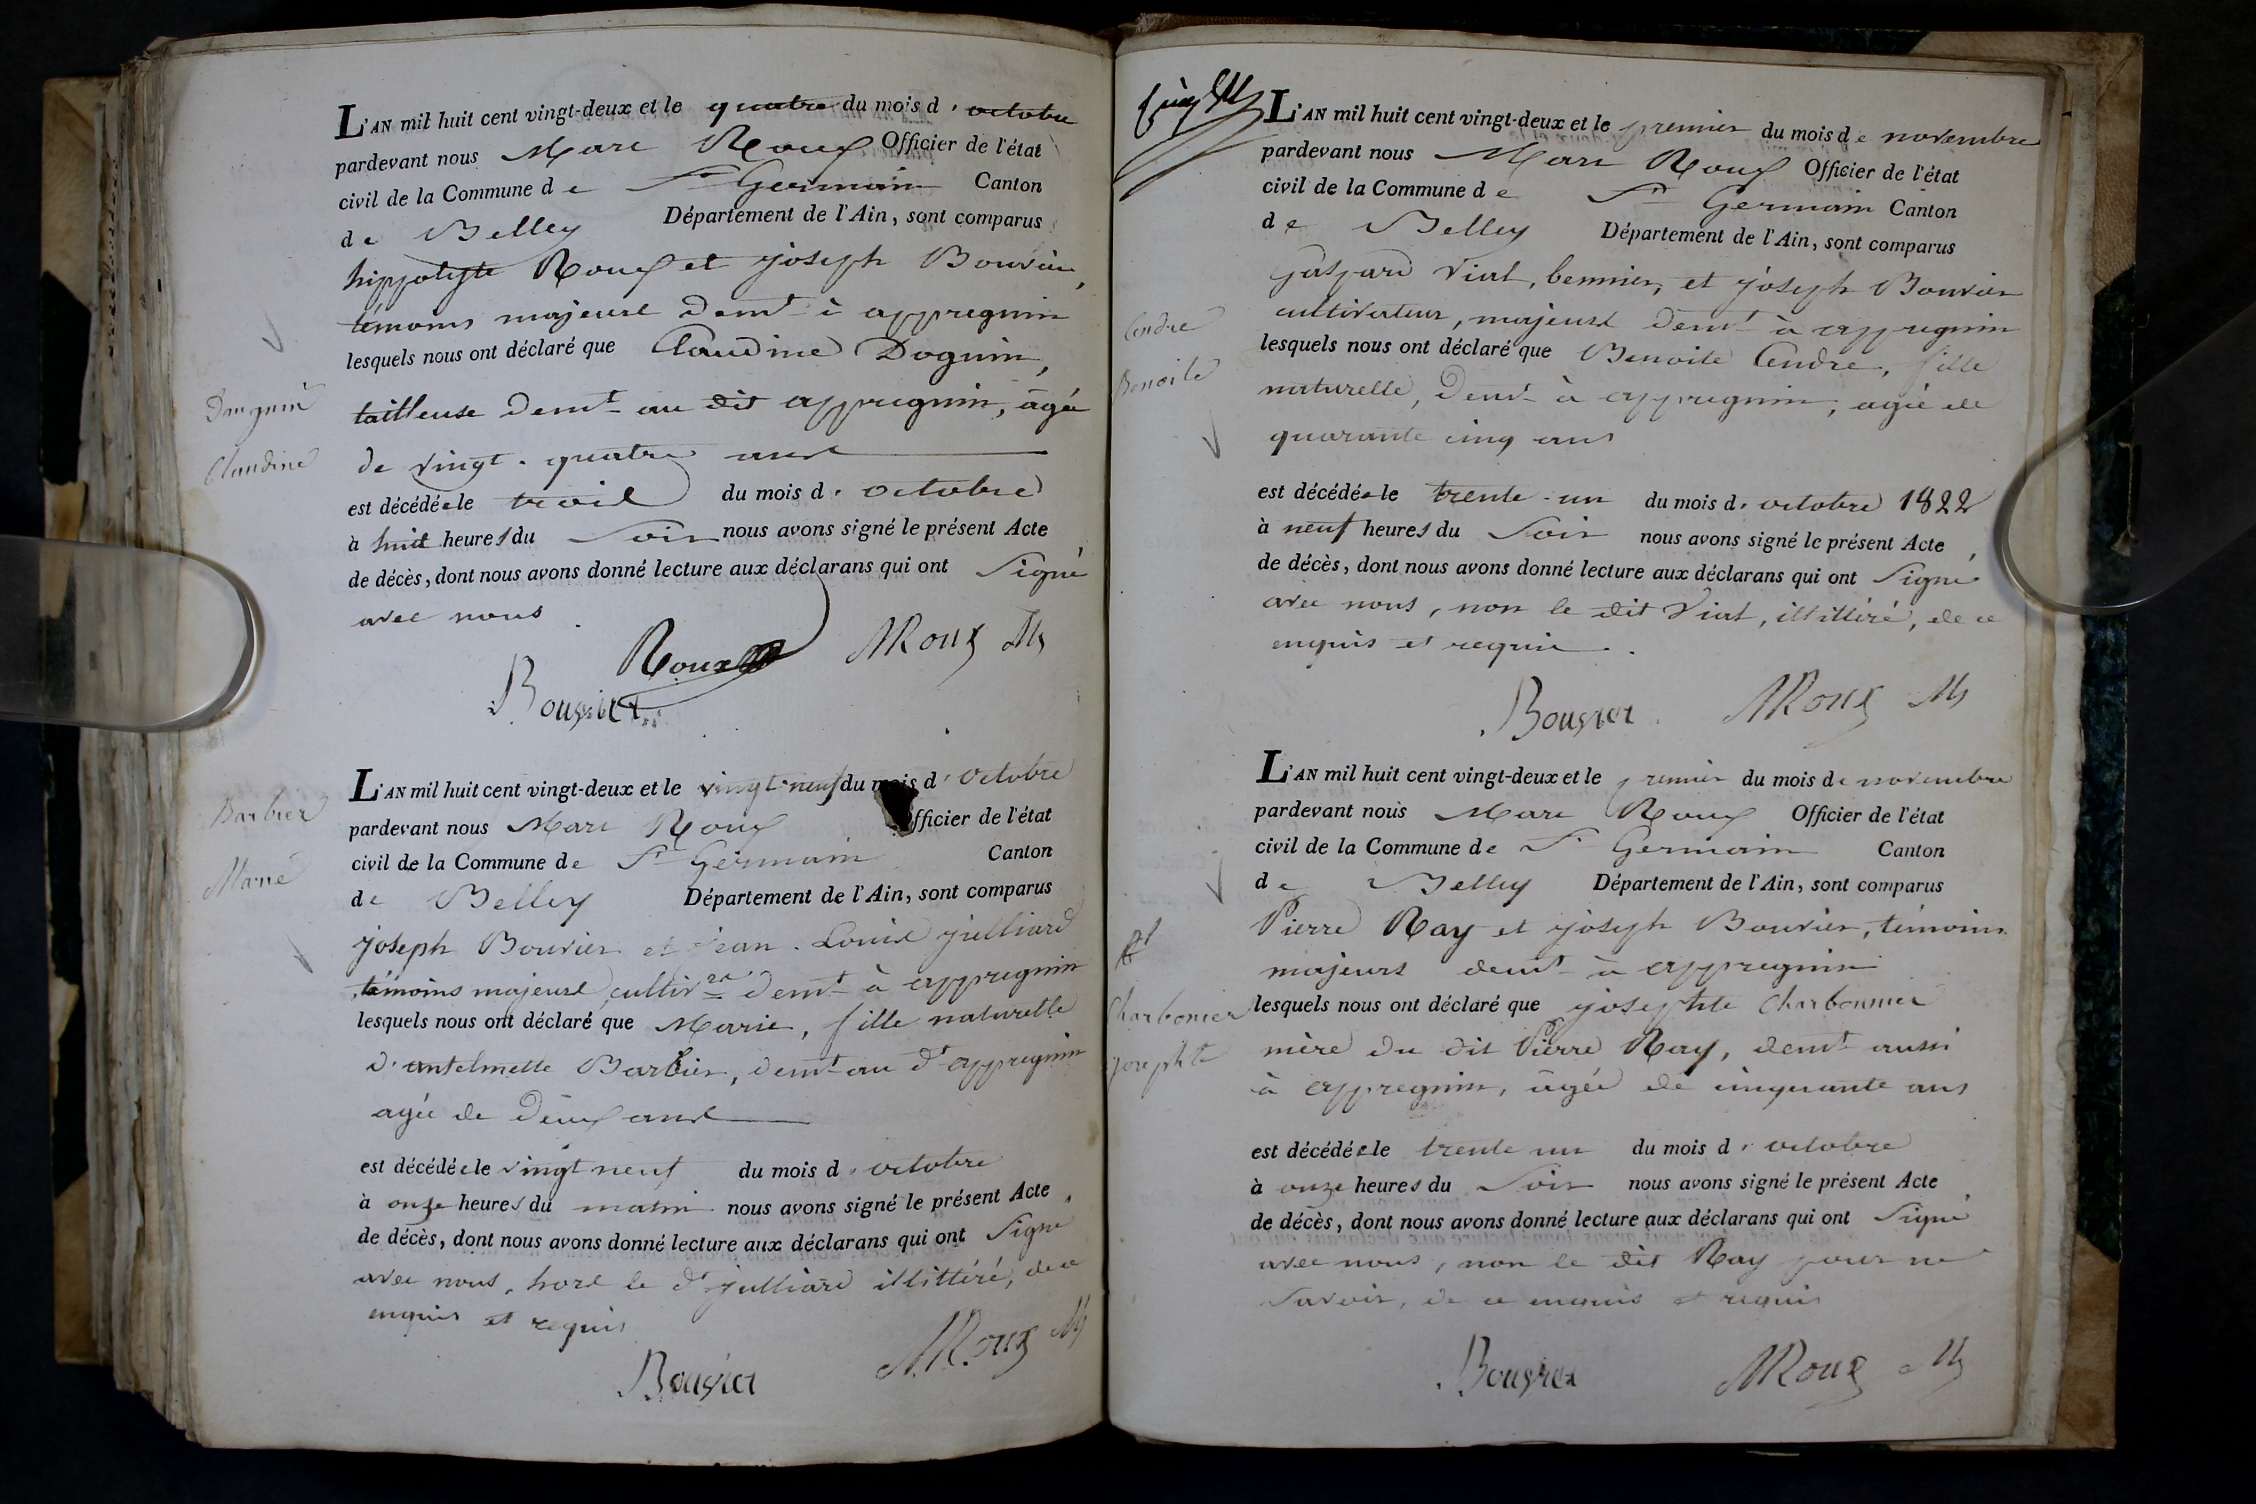 L'AN mil huit cent vingt-deux et le quatre du mois d'octobre
pardevant nous Marc Roux Officier de l'état
civil de la Commune de St Germain Canton
de Belley Département de l'Ain, sont comparus
hippolyte Roux et joseph Bouvier,
témoins majeurs demt à appregnin
lesquels nous ont déclaré que Claudine Doguin,
tailleuse demt au dit appregnin, âgée
de vingt-quatre ans
est décédée le trois du mois d'octobre
à huit heures du Soir nous avons signé le présent Acte
de décès, dont nous avons donné lecture aux déclarans qui ont Signé
avec nous
Roux MRoux
Bouvier
Douguin
Claudine
L'AN mil huit cent vingt-deux et le vingt-neuf du mois d'octobre
pardevant nous Marc Roux Officier de l'état
civil de la Commune de St Germain Canton
de Belley Département de l'Ain, sont comparus
joseph Bouvier et jean-Louis julliard
témoins majeurs cultivrs demt à appregnin
lesquels nous ont déclaré que Marie, fille naturelle
d'antelmette Barbier, demt au dt appregnin
agée de Deux ans
est décédée le vingt neuf du mois d'octobre
à onze heures du matin nous avons signé le présent Acte,
de décès, dont nous avons donné lecture aux déclarans qui ont Signé
avec nous, hors le dt julliard illittéré, de ce
enquis et requis
Bouvier MRoux
Barbier
Marie
L'AN mil huit cent vingt-deux et le premier du mois de novembre
pardevant nous Marc Roux Officier de l'état
civil de la Commune de St Germain Canton
de Belley Département de l'Ain, sont comparus
gaspard Viat, bennier, et joseph Bouvier
cultivateur, majeurs demt à appregnin
lesquels nous ont déclaré que Benoite Cendre, fille
naturelle, demt à appregnin, agée de
quarante cinq ans
est décédée le trente-un du mois d'octobre 1822
à neuf heures du Soir nous avons signé le présent Acte,
de décès, dont nous avons donné lecture aux déclarans qui ont Signé
avec nous, non le dit Viat, illittéré, de ce
enquis et requis.
Bouvier MRoux
Cendre
Benoite
L'AN mil huit cent vingt-deux et le premier du mois de novembre
pardevant nous Marc Roux Officier de l'état
civil de la Commune de St Germain Canton
de Belley Département de l'Ain, sont comparus
Pierre Ray et joseph Bouvier, témoins
majeurs demt à appregnin
lesquels nous ont déclaré que josephte Charbonnier
mère du dit Pierre Ray, demt aussi
à appregnin, âgée de cinquante ans
est décédée le trente un du mois d'octobre
à onze heures du Soir nous avons signé le présent Acte
de décès, dont nous avons donné lecture aux déclarans qui ont Signé
avec nous, non le dit Ray pour ne
Savoir, de ce enquis et requis
Bouvier MRoux
Charbonier
josephte